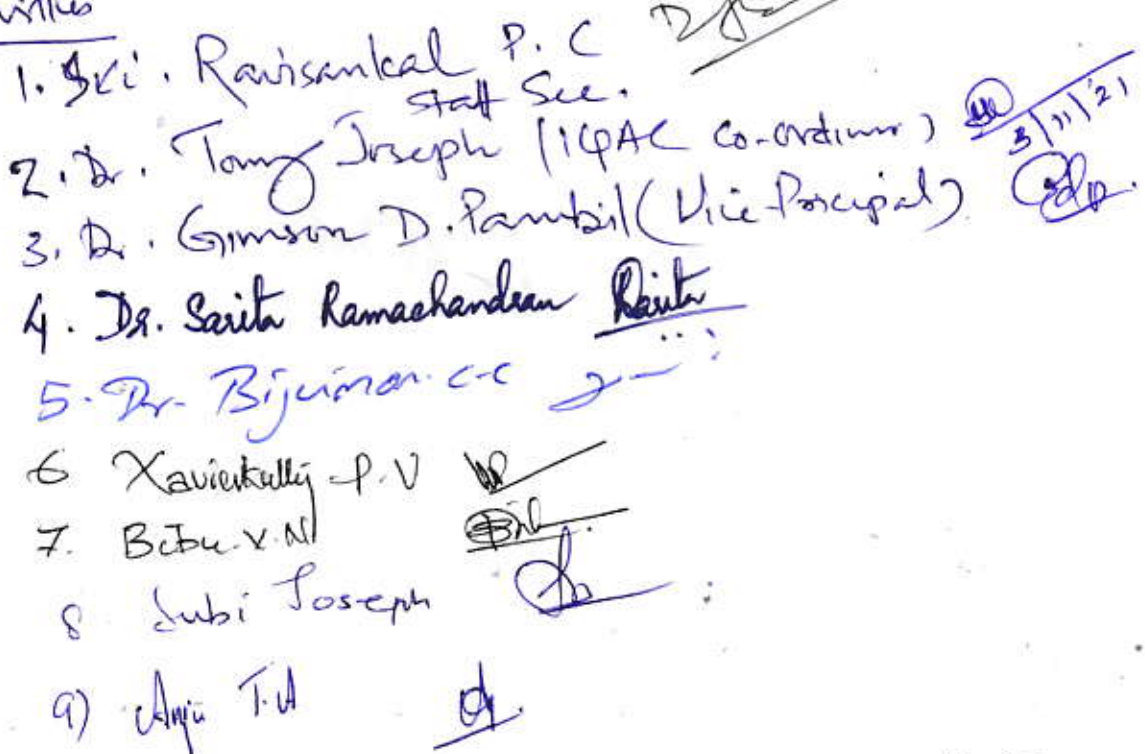 1. Sri. Ravisankal P. C
Staff Sec.
2. Dr. Tomy Joseph (IQAC Co-ordinator)
3/11/21
3. Dr. Gimson D. Parambil (Vice-Principal)
4. Dr. Sarita Ramachandran Sarita
5. Dr. Bijumon. C.C
6 Xavierkutty P.V
7. Bibu. V. N
8 Jubi Joseph
9) Anju T.A